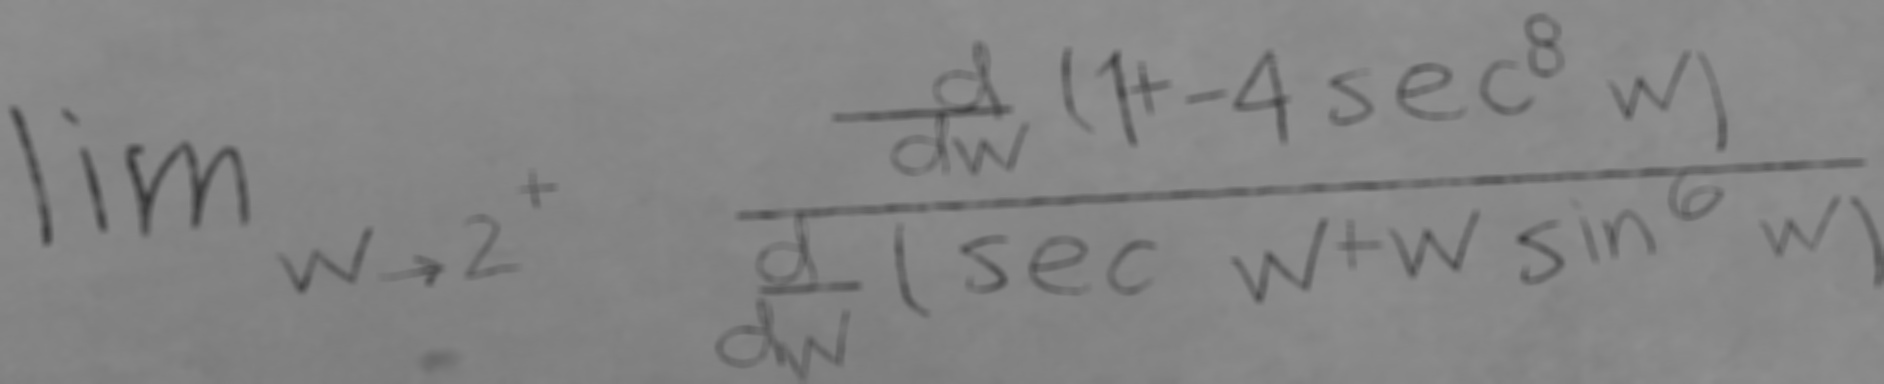 \lim_{w \to 2^+} \frac{\frac{d}{dw}(1+-4\sec^8 w)}{\frac{d}{dw}(\sec w+w\sin^6 w)}